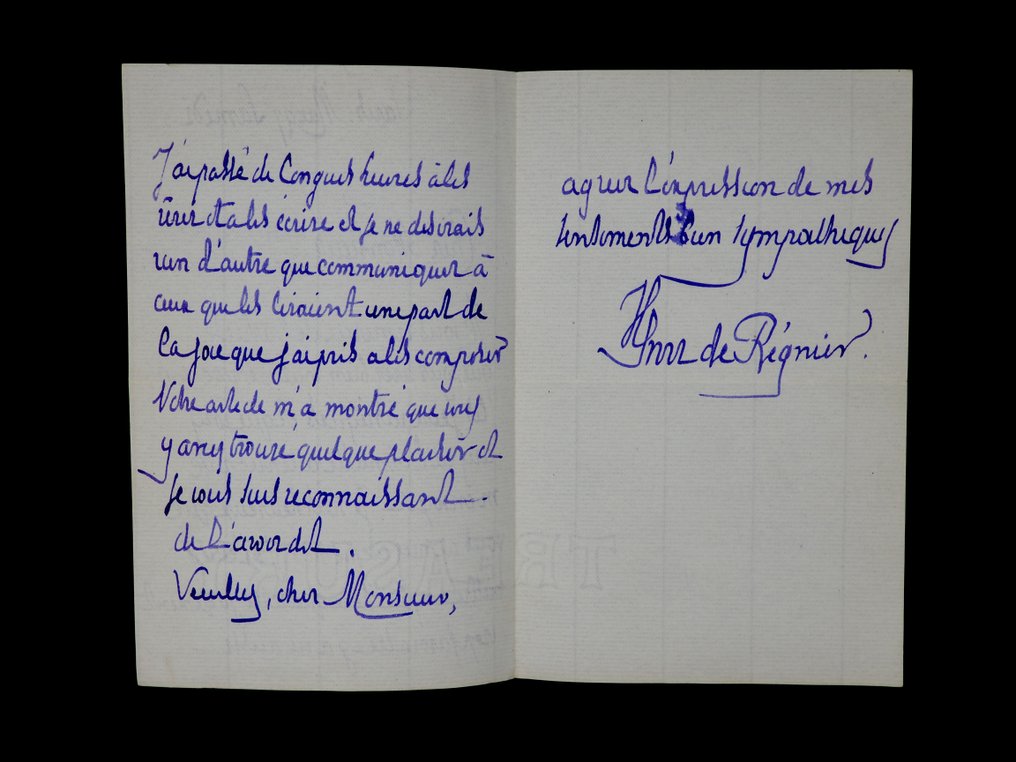 J'ai passé de longues heures à les
rêver et à les écrire et je ne desirais
rien d'autre que communiquer à
ceux qui les liraient une part de
la joie que j'ai pris a les composer
Votre article m'a montré que vous
y avez trouvé quelque plaisir et
je vous suis reconnaissant
de l'avoir dit.
Veuillez, cher Monsieur,
agreer l'expression de mes
sentiments bien sympathiques
Henri de Régnier.